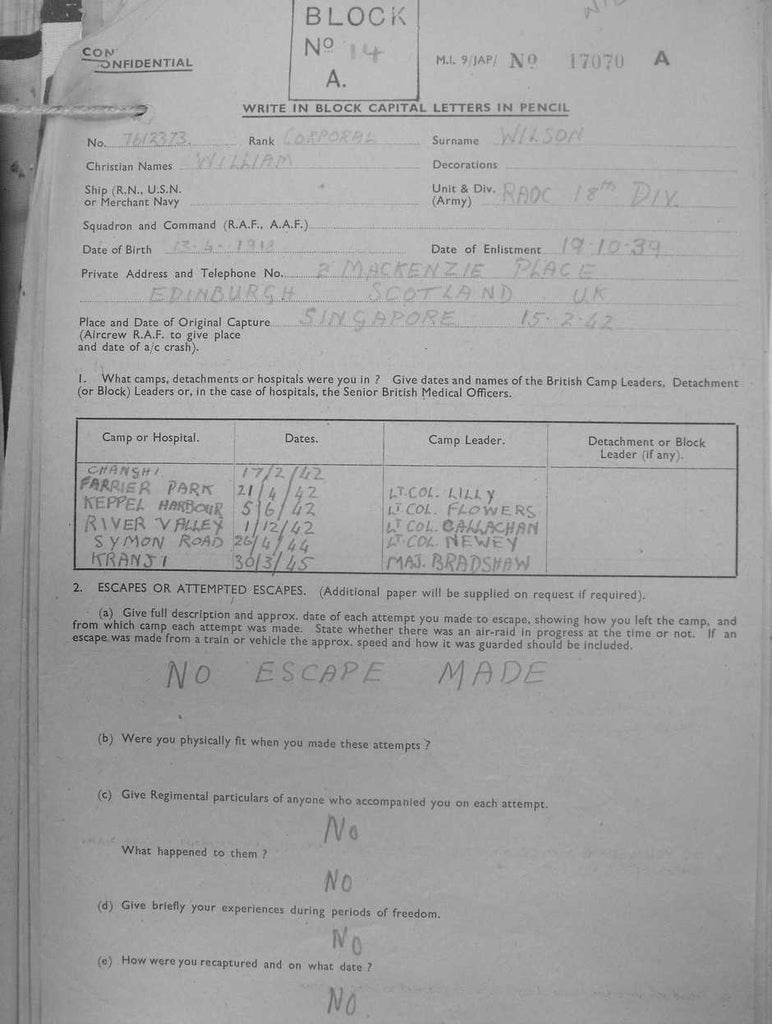 BLOCK
Nº 14
A.
CON
ONFIDENTIAL
M.I. 9/JAP/ Nº 17070 A
WRITE IN BLOCK CAPITAL LETTERS IN PENCIL
No. 7612373. Rank CORPORAL Surname WILSON
Christian Names WILLIAM Decorations
Ship (R.N., U.S.N. or Merchant Navy Unit & Div. (Army) RAOC 18TH DIV.
Squadron and Command (R.A.F., A.A.F.)
Date of Birth 13-4-1918 Date of Enlistment 19-10-39
Private Address and Telephone No. 2 MACKENZIE PLACE
EDINBURGH SCOTLAND UK
Place and Date of Original Capture SINGAPORE 15-2-42
(Aircrew R.A.F. to give place
and date of a/c crash).
1. What camps, detachments or hospitals were you in ? Give dates and names of the British Camp Leaders, Detachment
(or Block) Leaders or, in the case of hospitals, the Senior British Medical Officers.
Camp or Hospital. Dates. Camp Leader. Detachment or Block Leader (if any).
CHANGHI 17/2/42
FARRIER PARK 21/4/42 LT. COL. LILLY
KEPPEL HARBOUR 5/6/42 LT. COL. FLOWERS
RIVER VALLEY 1/12/42 LT COL. CALLACHAN
SYMON ROAD 26/4/44 LT. COL. NEWEY
KRANJI 30/3/45 MAJ. BRADSHAW
2. ESCAPES OR ATTEMPTED ESCAPES. (Additional paper will be supplied on request if required).
(a) Give full description and approx. date of each attempt you made to escape, showing how you left the camp, and
from which camp each attempt was made. State whether there was an air-raid in progress at the time or not. If an
escape was made from a train or vehicle the approx. speed and how it was guarded should be included.
NO ESCAPE MADE
(b) Were you physically fit when you made these attempts ?
(c) Give Regimental particulars of anyone who accompanied you on each attempt.
No
What happened to them ?
NO
(d) Give briefly your experiences during periods of freedom.
NO
(e) How were you recaptured and on what date ?
NO